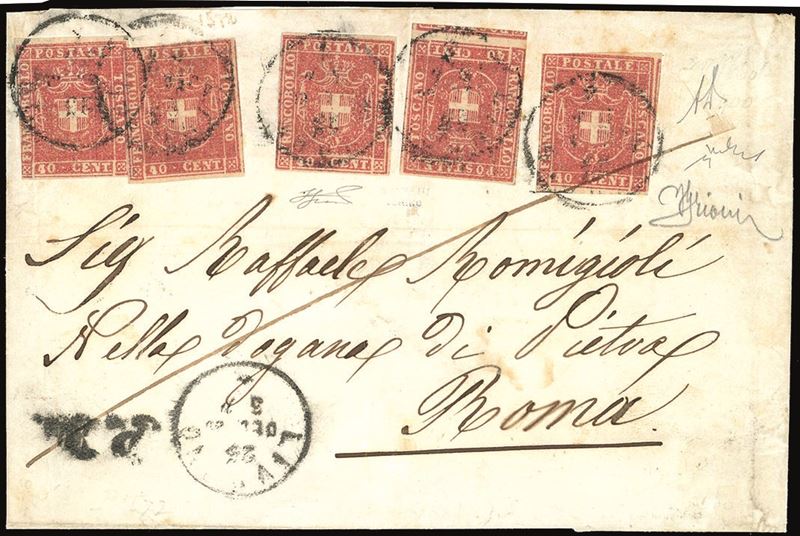 FRANCOBOLLO POSTALE TOSCANO 40 CENT
FRANCOBOLLO 40 CENT
FRANCOBOLLO POSTALE 40 CENT
FRANCOBOLLO POSTALE TOSCANO 40 CENT
FRANCOBOLLO POSTALE TOSCANO 40 CENT
Sig Raffaele Romigioli
Nella Dogana di Pietra
Roma
P.D.
LIVORNO
25
DEC